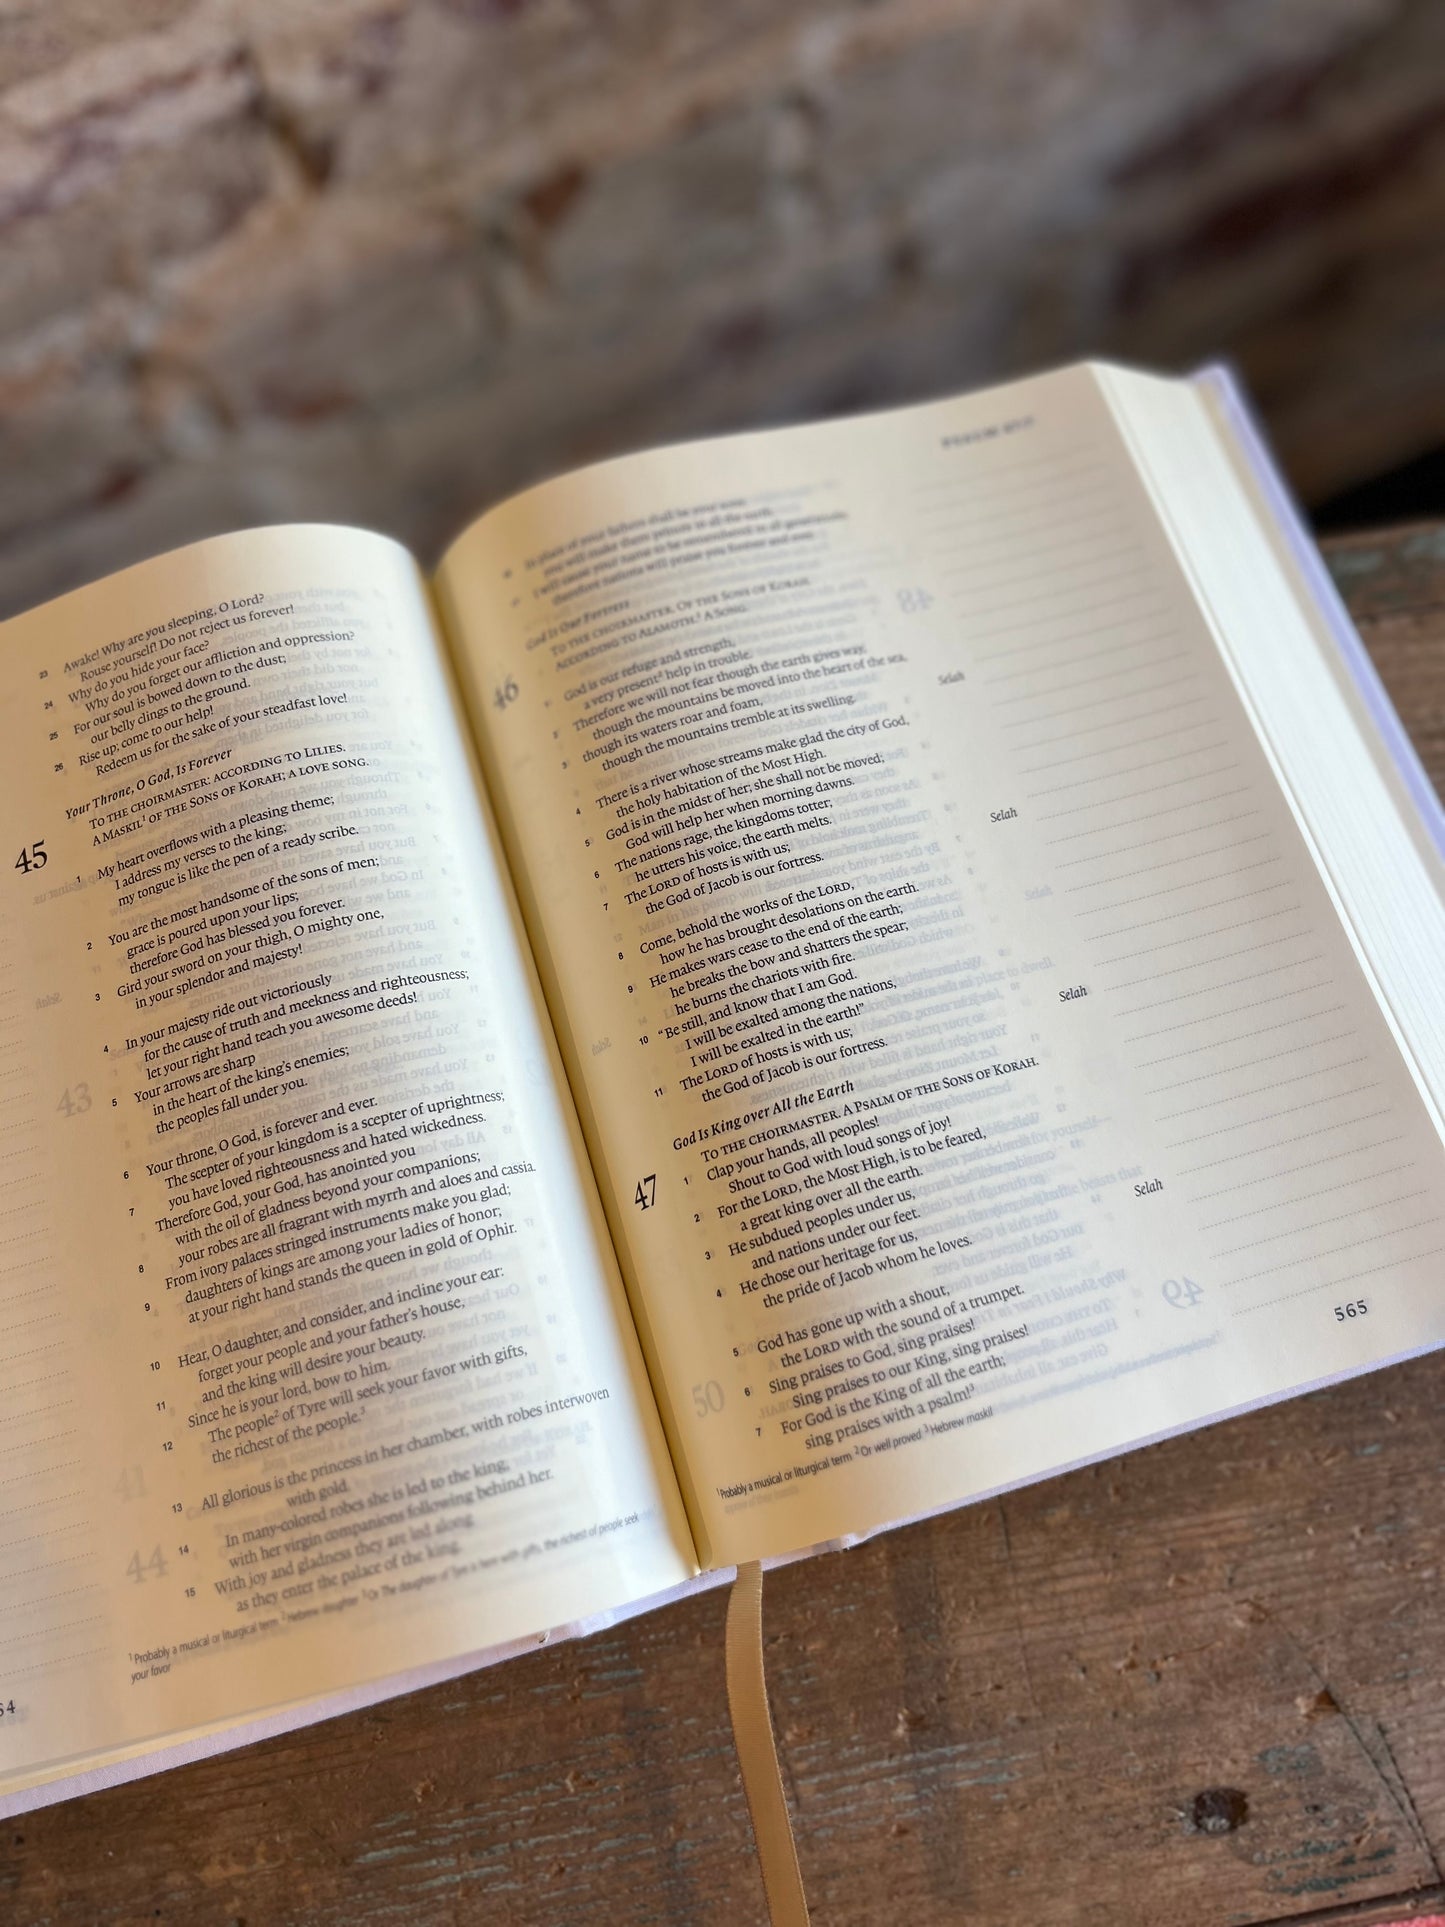 23 Awake! Why are you sleeping, O Lord?
Rouse yourself! Do not reject us forever!
24 Why do you hide your face?
Why do you forget our affliction and oppression?
25 For our soul is bowed down to the dust;
our belly clings to the ground.
26 Rise up; come to our help!
Redeem us for the sake of your steadfast love!
Your Throne, O God, Is Forever
45 TO THE CHOIRMASTER: ACCORDING TO LILIES.
A MASKIL¹ OF THE SONS OF KORAH; A LOVE SONG.
1 My heart overflows with a pleasing theme;
I address my verses to the king;
my tongue is like the pen of a ready scribe.
2 You are the most handsome of the sons of men;
grace is poured upon your lips;
therefore God has blessed you forever.
3 Gird your sword on your thigh, O mighty one,
in your splendor and majesty!
4 In your majesty ride out victoriously
for the cause of truth and meekness and righteousness;
let your right hand teach you awesome deeds!
5 Your arrows are sharp
in the heart of the king's enemies;
the peoples fall under you.
6 Your throne, O God, is forever and ever.
The scepter of your kingdom is a scepter of uprightness;
7 you have loved righteousness and hated wickedness.
Therefore God, your God, has anointed you
with the oil of gladness beyond your companions;
8 your robes are all fragrant with myrrh and aloes and cassia.
From ivory palaces stringed instruments make you glad;
9 daughters of kings are among your ladies of honor;
at your right hand stands the queen in gold of Ophir.
10 Hear, O daughter, and consider, and incline your ear:
forget your people and your father's house,
11 and the king will desire your beauty.
Since he is your lord, bow to him.
12 The people² of Tyre will seek your favor with gifts,
the richest of the people.³
13 All glorious is the princess in her chamber, with robes interwoven
with gold.
14 In many-colored robes she is led to the king,
with her virgin companions following behind her.
15 With joy and gladness they are led along
as they enter the palace of the king.
¹ Probably a musical or liturgical term ² Hebrew daughter ³ Or The daughter of Tyre is here with gifts, the richest of people seek
your favor
PSALM
16 In place of your fathers shall be your sons;
you will make them princes in all the earth.
17 I will cause your name to be remembered in all generations;
therefore nations will praise you forever and ever.
God Is Our Fortress
46 TO THE CHOIRMASTER. OF THE SONS OF KORAH.
ACCORDING TO ALAMOTH.¹ A SONG.
1 God is our refuge and strength,
a very present² help in trouble.
2 Therefore we will not fear though the earth gives way,
though the mountains be moved into the heart of the sea,
3 though its waters roar and foam,
though the mountains tremble at its swelling. Selah
4 There is a river whose streams make glad the city of God,
the holy habitation of the Most High.
5 God is in the midst of her; she shall not be moved;
God will help her when morning dawns.
6 The nations rage, the kingdoms totter;
he utters his voice, the earth melts.
7 The LORD of hosts is with us;
the God of Jacob is our fortress. Selah
8 Come, behold the works of the LORD,
how he has brought desolations on the earth.
9 He makes wars cease to the end of the earth;
he breaks the bow and shatters the spear;
he burns the chariots with fire.
10 "Be still, and know that I am God.
I will be exalted among the nations,
I will be exalted in the earth!"
11 The LORD of hosts is with us;
the God of Jacob is our fortress. Selah
God Is King over All the Earth
47 TO THE CHOIRMASTER. A PSALM OF THE SONS OF KORAH.
1 Clap your hands, all peoples!
Shout to God with loud songs of joy!
2 For the LORD, the Most High, is to be feared,
a great king over all the earth.
3 He subdued peoples under us,
and nations under our feet.
4 He chose our heritage for us,
the pride of Jacob whom he loves. Selah
5 God has gone up with a shout,
the LORD with the sound of a trumpet.
6 Sing praises to God, sing praises!
Sing praises to our King, sing praises!
7 For God is the King of all the earth;
sing praises with a psalm!³
¹ Probably a musical or liturgical term ² Or well proved ³ Hebrew maskil
565